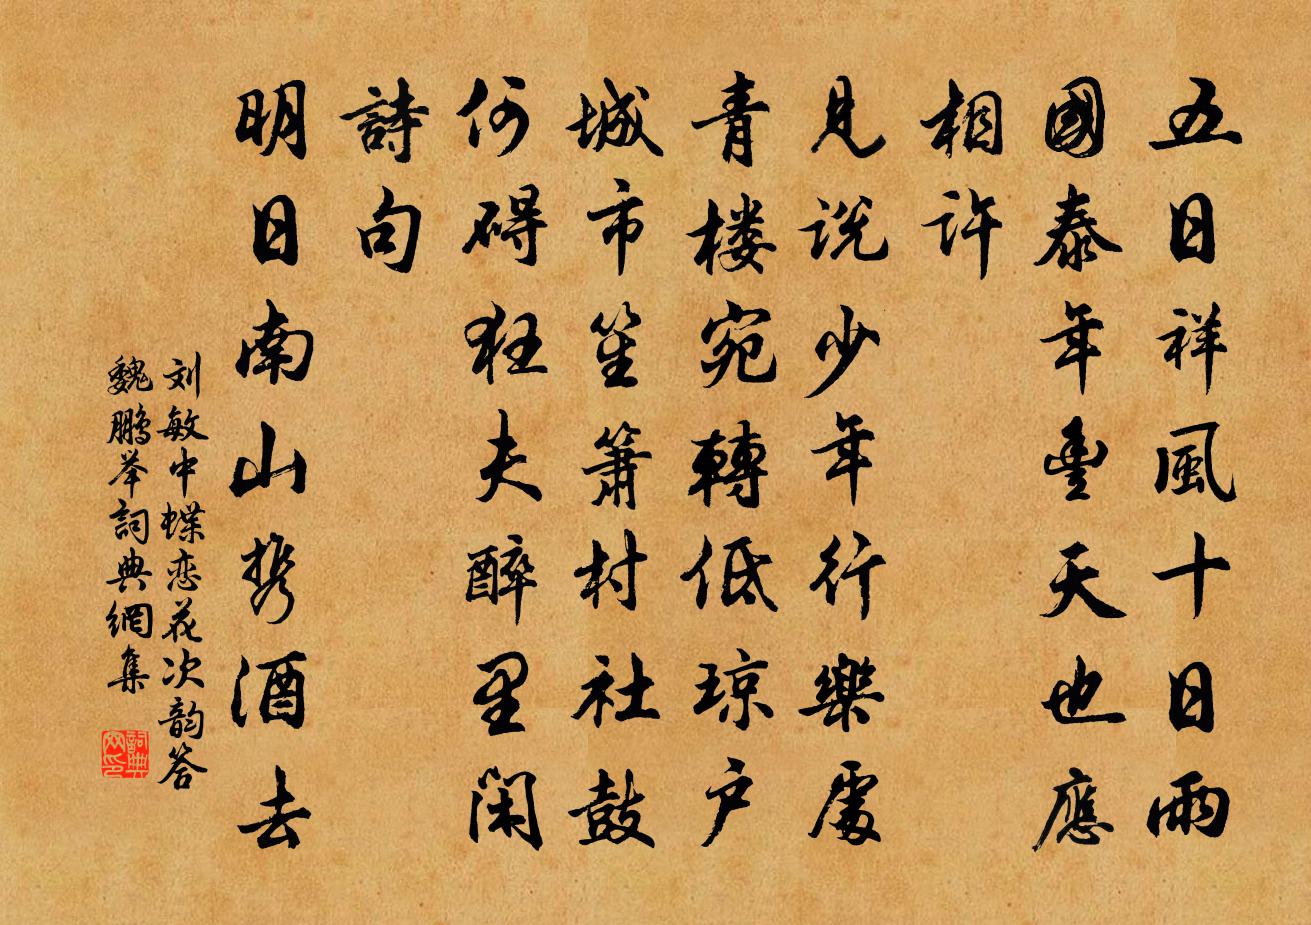 五日祥風十日雨
國泰年豐天也應
相許
見说少年行樂處
青楼宛轉低琼户
城市笙簫村社鼓
何碍狂夫醉里闲
詩句
明日南山携酒去
刘敏中蝶恋花次韵答
魏鹏举詞典網集
詞典網印